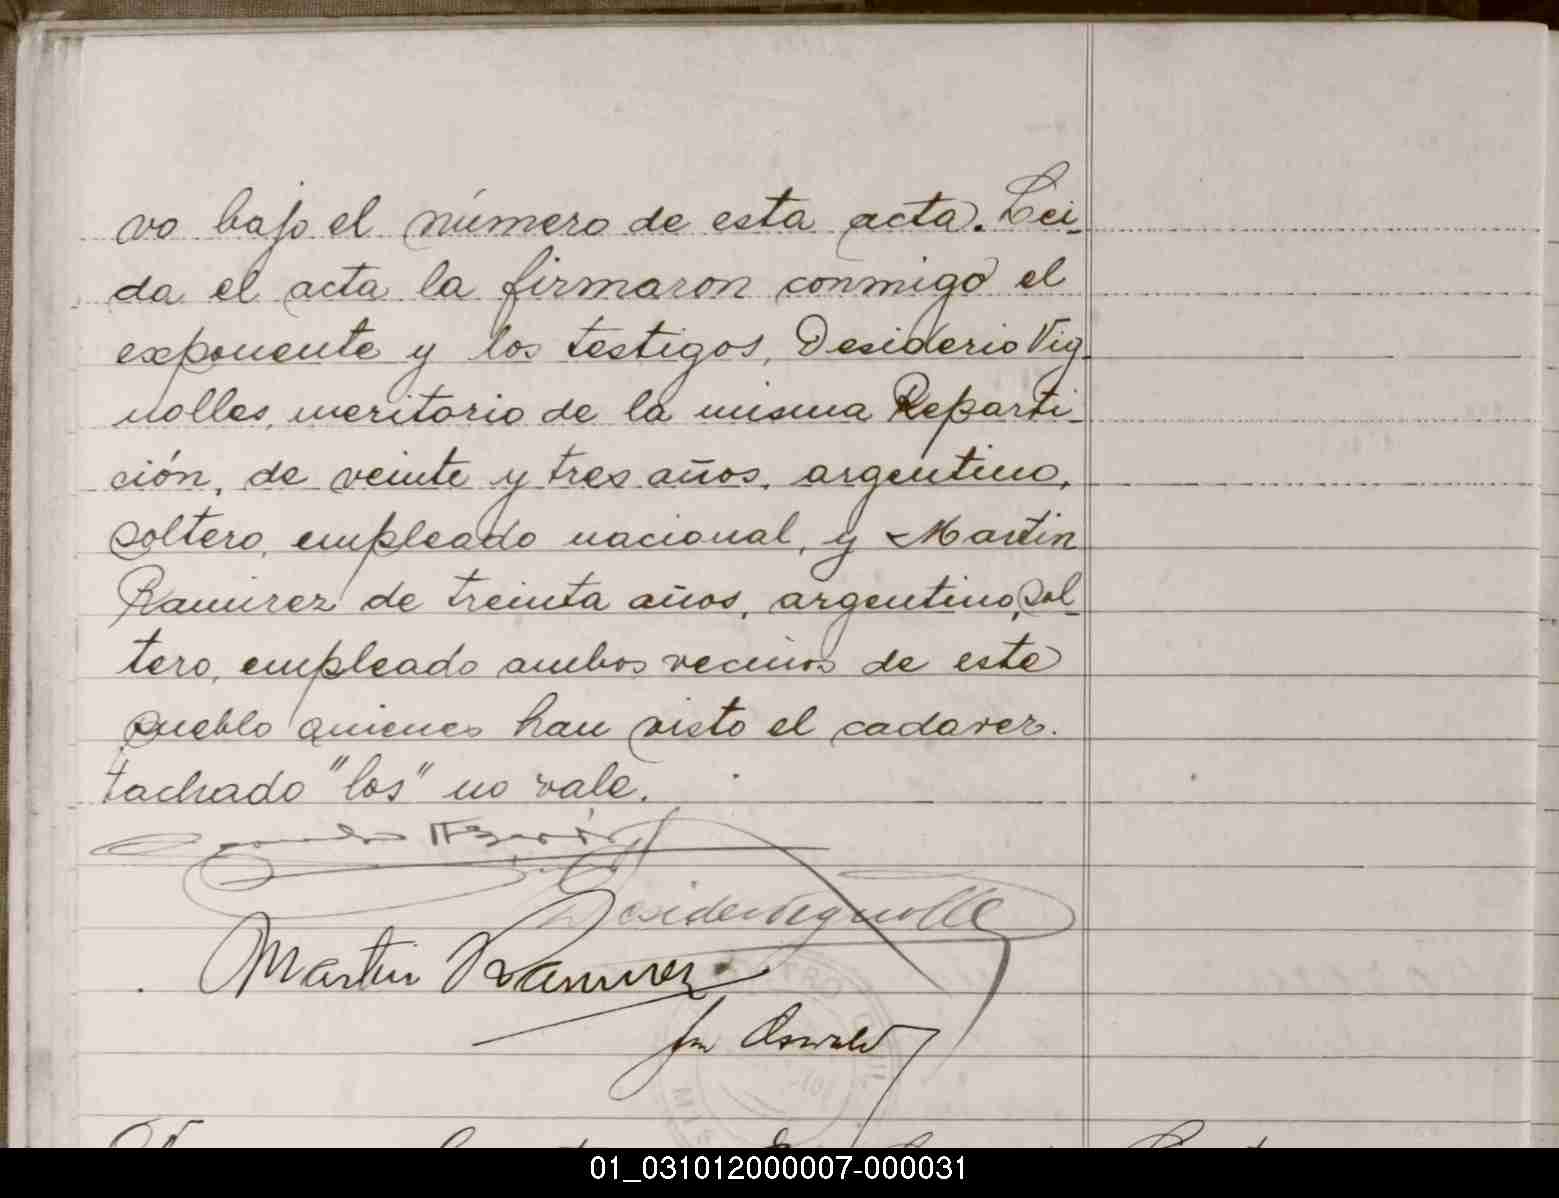 vo bajo el número de esta acta. Lei-
da el acta la firmaron conmigo el
exponente y los testigos, Desiderio Vig-
nolles, meritorio de la misma Reparti-
ción, de veinte y tres años, argentino,
soltero, empleado nacional, y Martin
Ramirez de treinta años, argentino, sol-
tero, empleado ambos vecinos de este
pueblo quienes han visto el cadaver.
tachado "los" no vale.
Martin Ramirez
Oswald
01_031012000007-000031